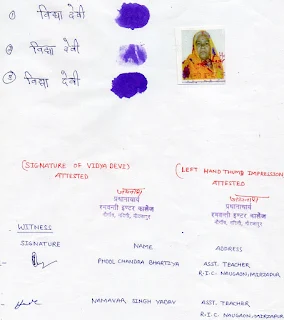 ① विद्या देवी
② विद्या देवी
③ विद्या देवी
(SIGNATURE OF VIDYA DEVI) (LEFT HAND THUMB IMPRESSION)
ATTESTED ATTESTED
प्रधानाचार्य प्रधानाचार्य
इण्टर कालेज इण्टर कालेज
WITNESS
SIGNATURE NAME ADDRESS
PHOOL CHANDRA BHARTIYA ASST. TEACHER
R.I.C. NAUGAON, MIRZAPUR
NAMAVAR SINGH YADAV ASST. TEACHER
R.I.C. NAUGAON, MIRZAPUR